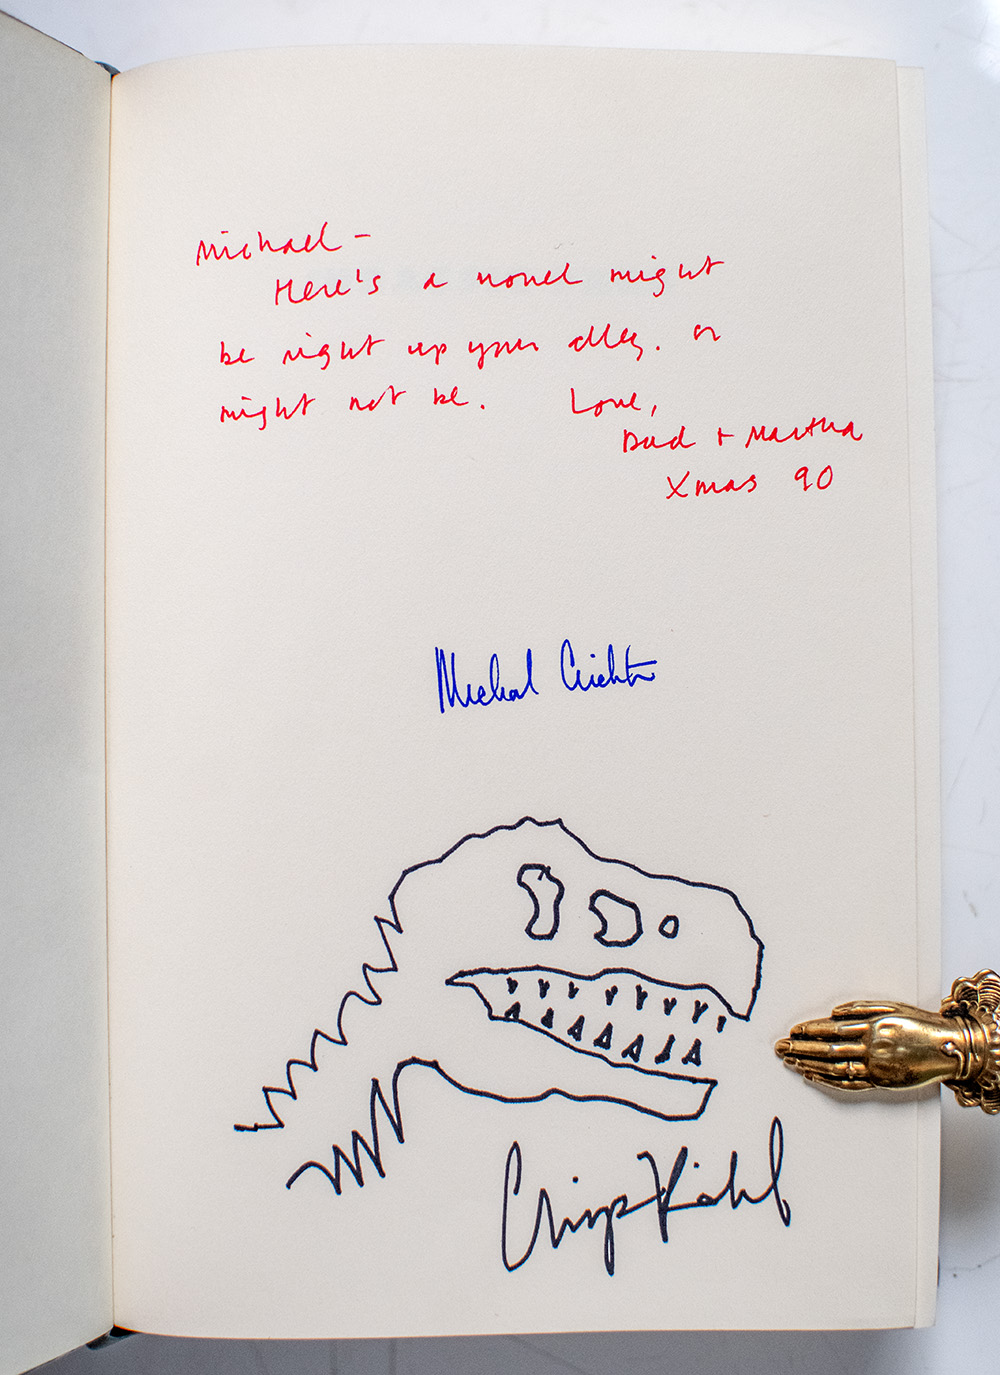 Michael –
Here's a novel might
be right up your alley. or
might not be. Love,
Dad + Martha
Xmas 90
Michael Crichton
Chip Kidd